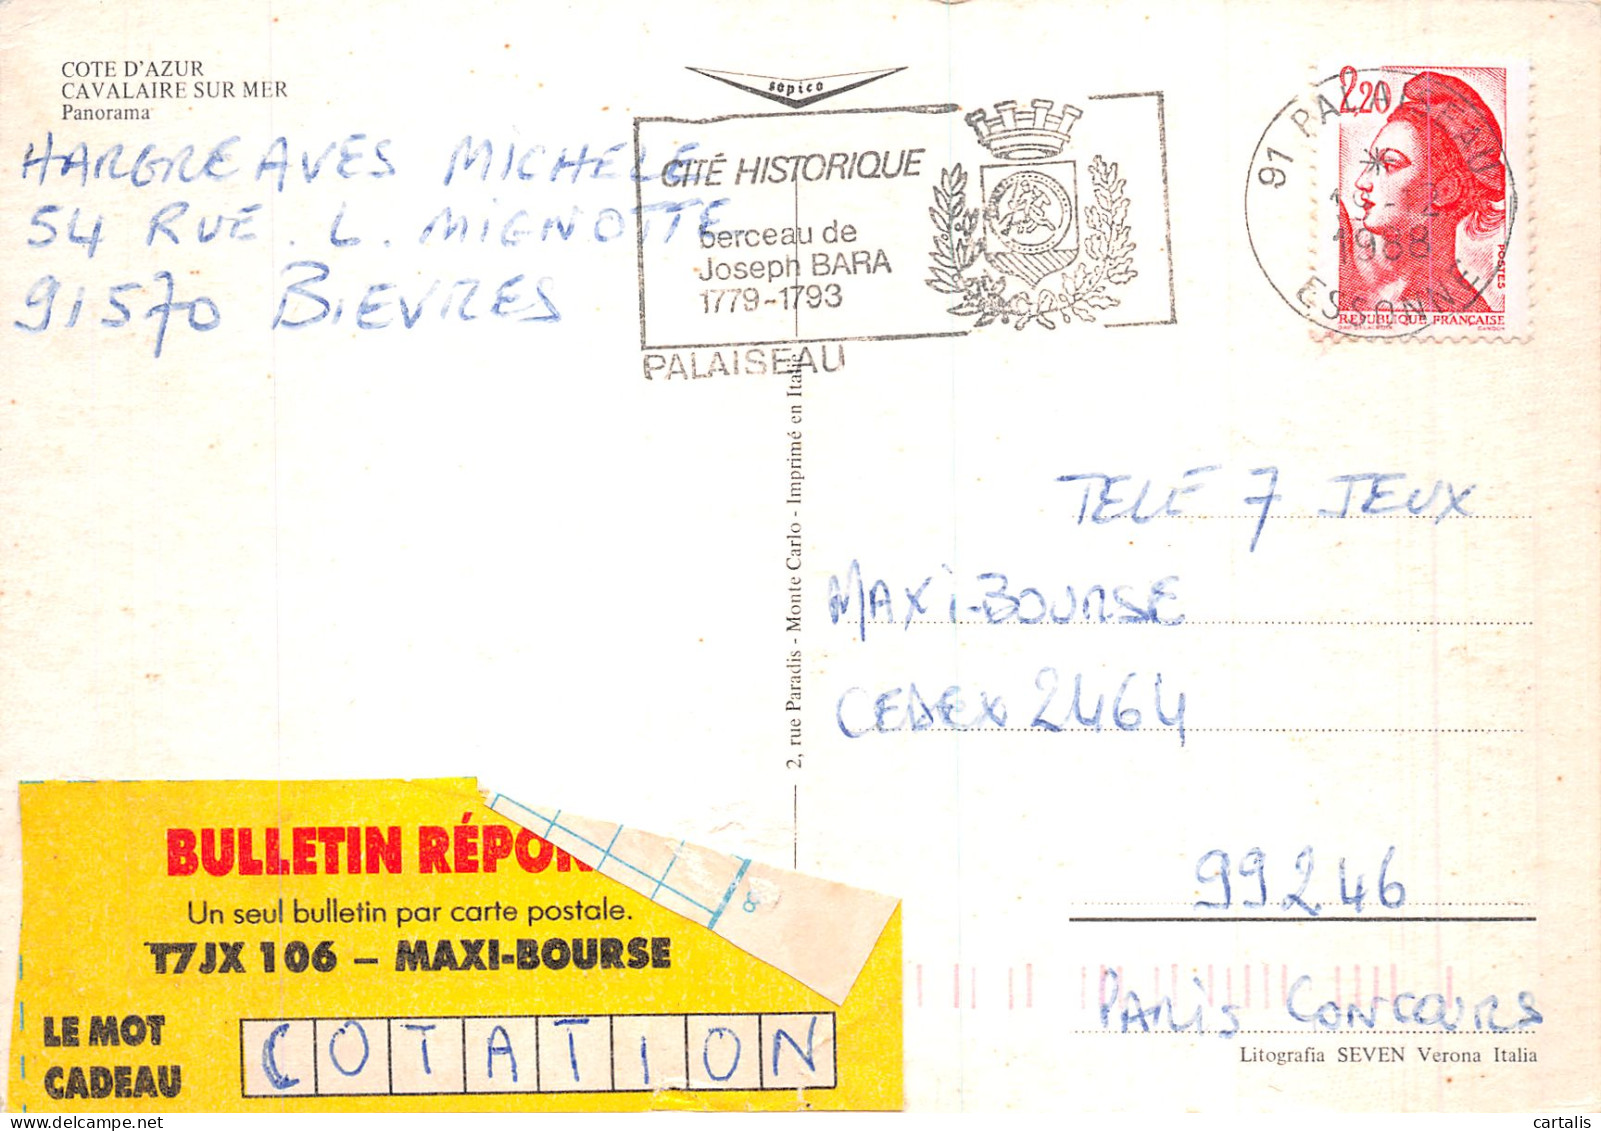 COTE D'AZUR
CAVALAIRE SUR MER
Panorama
sopico
HARGREAVES MICHELE
54 RUE. L. MIGNOTTE
91570 BIEVRES
CITÉ HISTORIQUE
berceau de
Joseph BARA
1779-1793
PALAISEAU
91 PALAISEAU
1988
ESSONNE
2,20
POSTES
REPUBLIQUE FRANCAISE
2, rue Paradis - Monte Carlo - Imprimé en Italie
TELE 7 JEUX
MAXI-BOURSE
CEDEX 2464
99246
PARIS CONCOURS
Litografia SEVEN Verona Italia
BULLETIN RÉPON
Un seul bulletin par carte postale.
T7JX 106 – MAXI-BOURSE
LE MOT
CADEAU
COTATION
cartalis